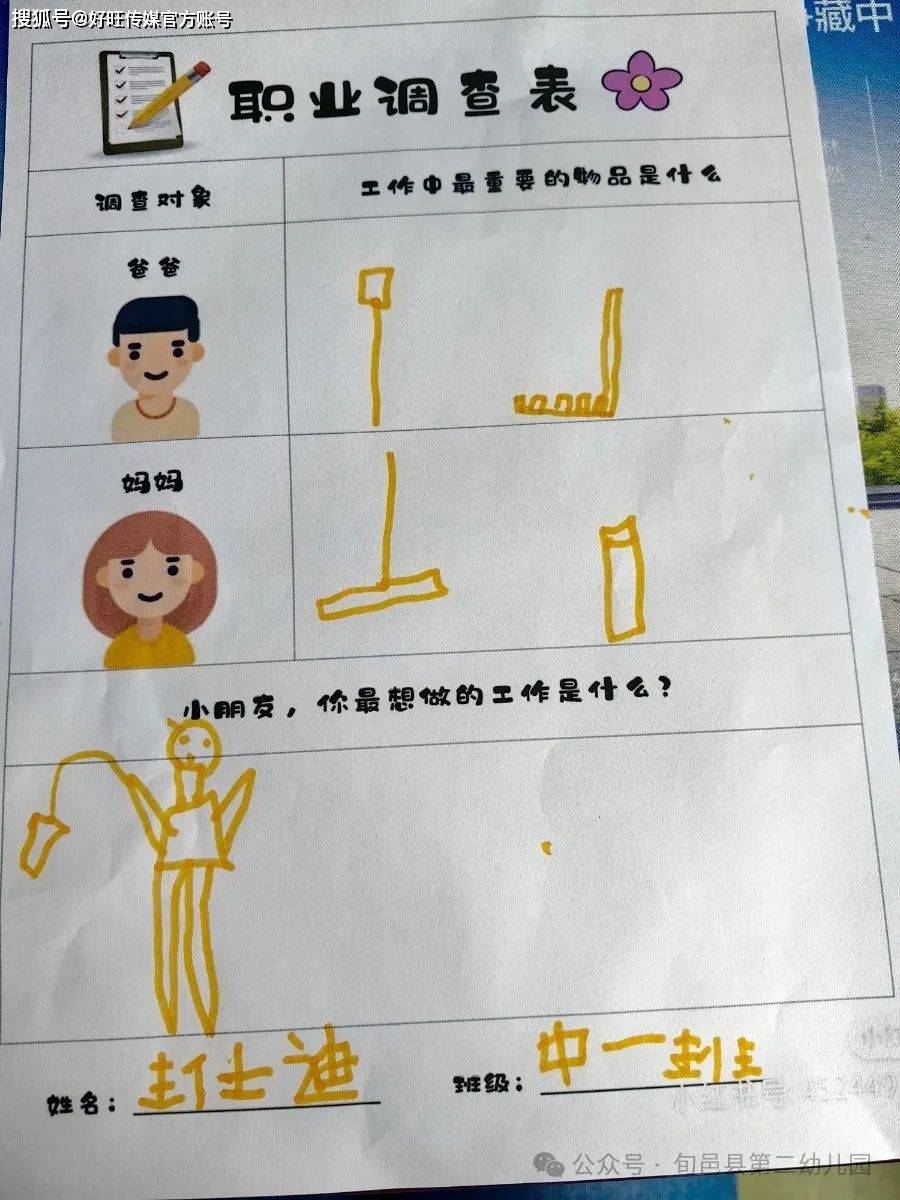 搜狐号@好旺传媒官方账号
藏中
职业调查表
调查对象
工作中最重要的物品是什么
爸爸
妈妈
小朋友，你最想做的工作是什么？
姓名：
班级：中一班
公众号·旬邑县第二幼儿园